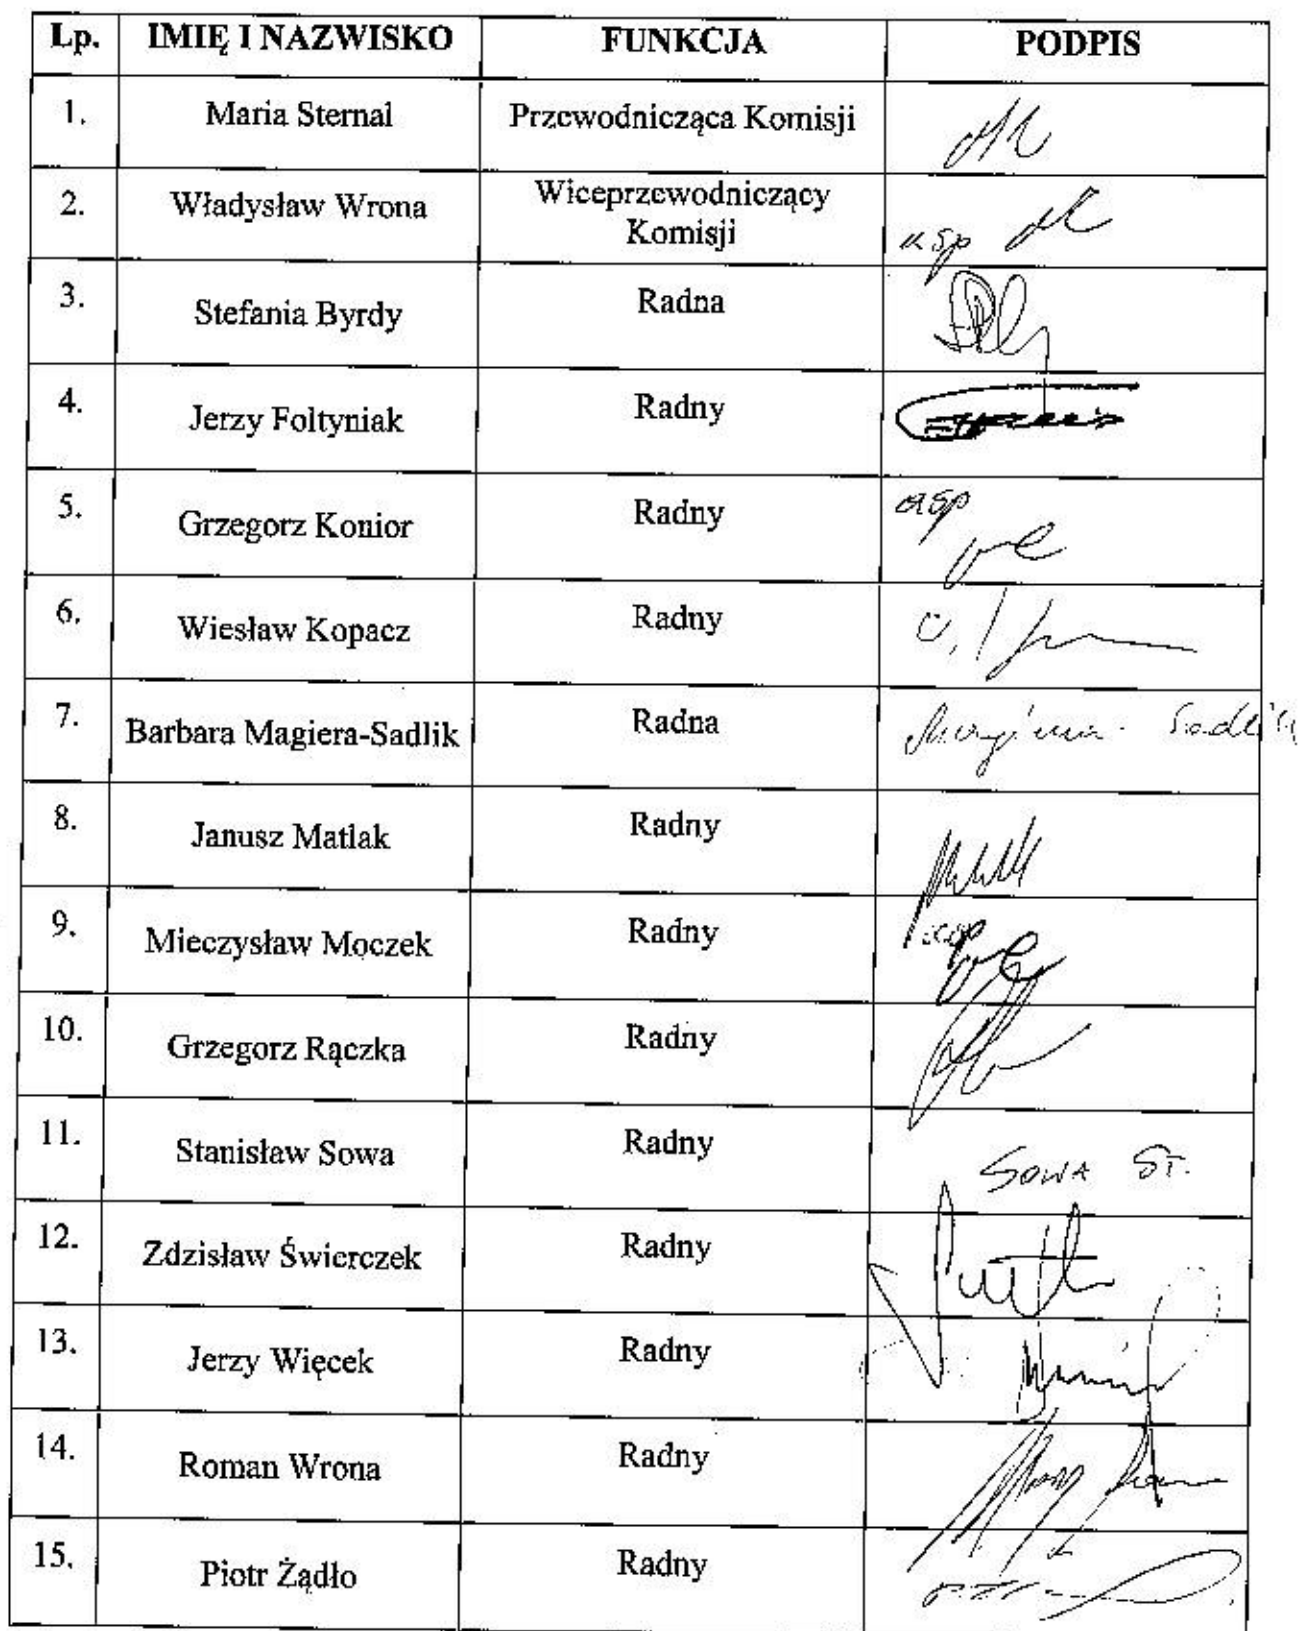 Lp. IMIĘ I NAZWISKO FUNKCJA PODPIS
1. Maria Sternal Przewodnicząca Komisji
2. Władysław Wrona Wiceprzewodniczący
Komisji
3. Stefania Byrdy Radna
4. Jerzy Foltyniak Radny
5. Grzegorz Konior Radny
6. Wiesław Kopacz Radny
7. Barbara Magiera-Sadlik Radna Magiera-Sadlik
8. Janusz Matlak Radny
9. Mieczysław Moczek Radny
10. Grzegorz Rączka Radny
11. Stanisław Sowa Radny SOWA ST.
12. Zdzisław Świerczek Radny
13. Jerzy Więcek Radny
14. Roman Wrona Radny
15. Piotr Żądło Radny